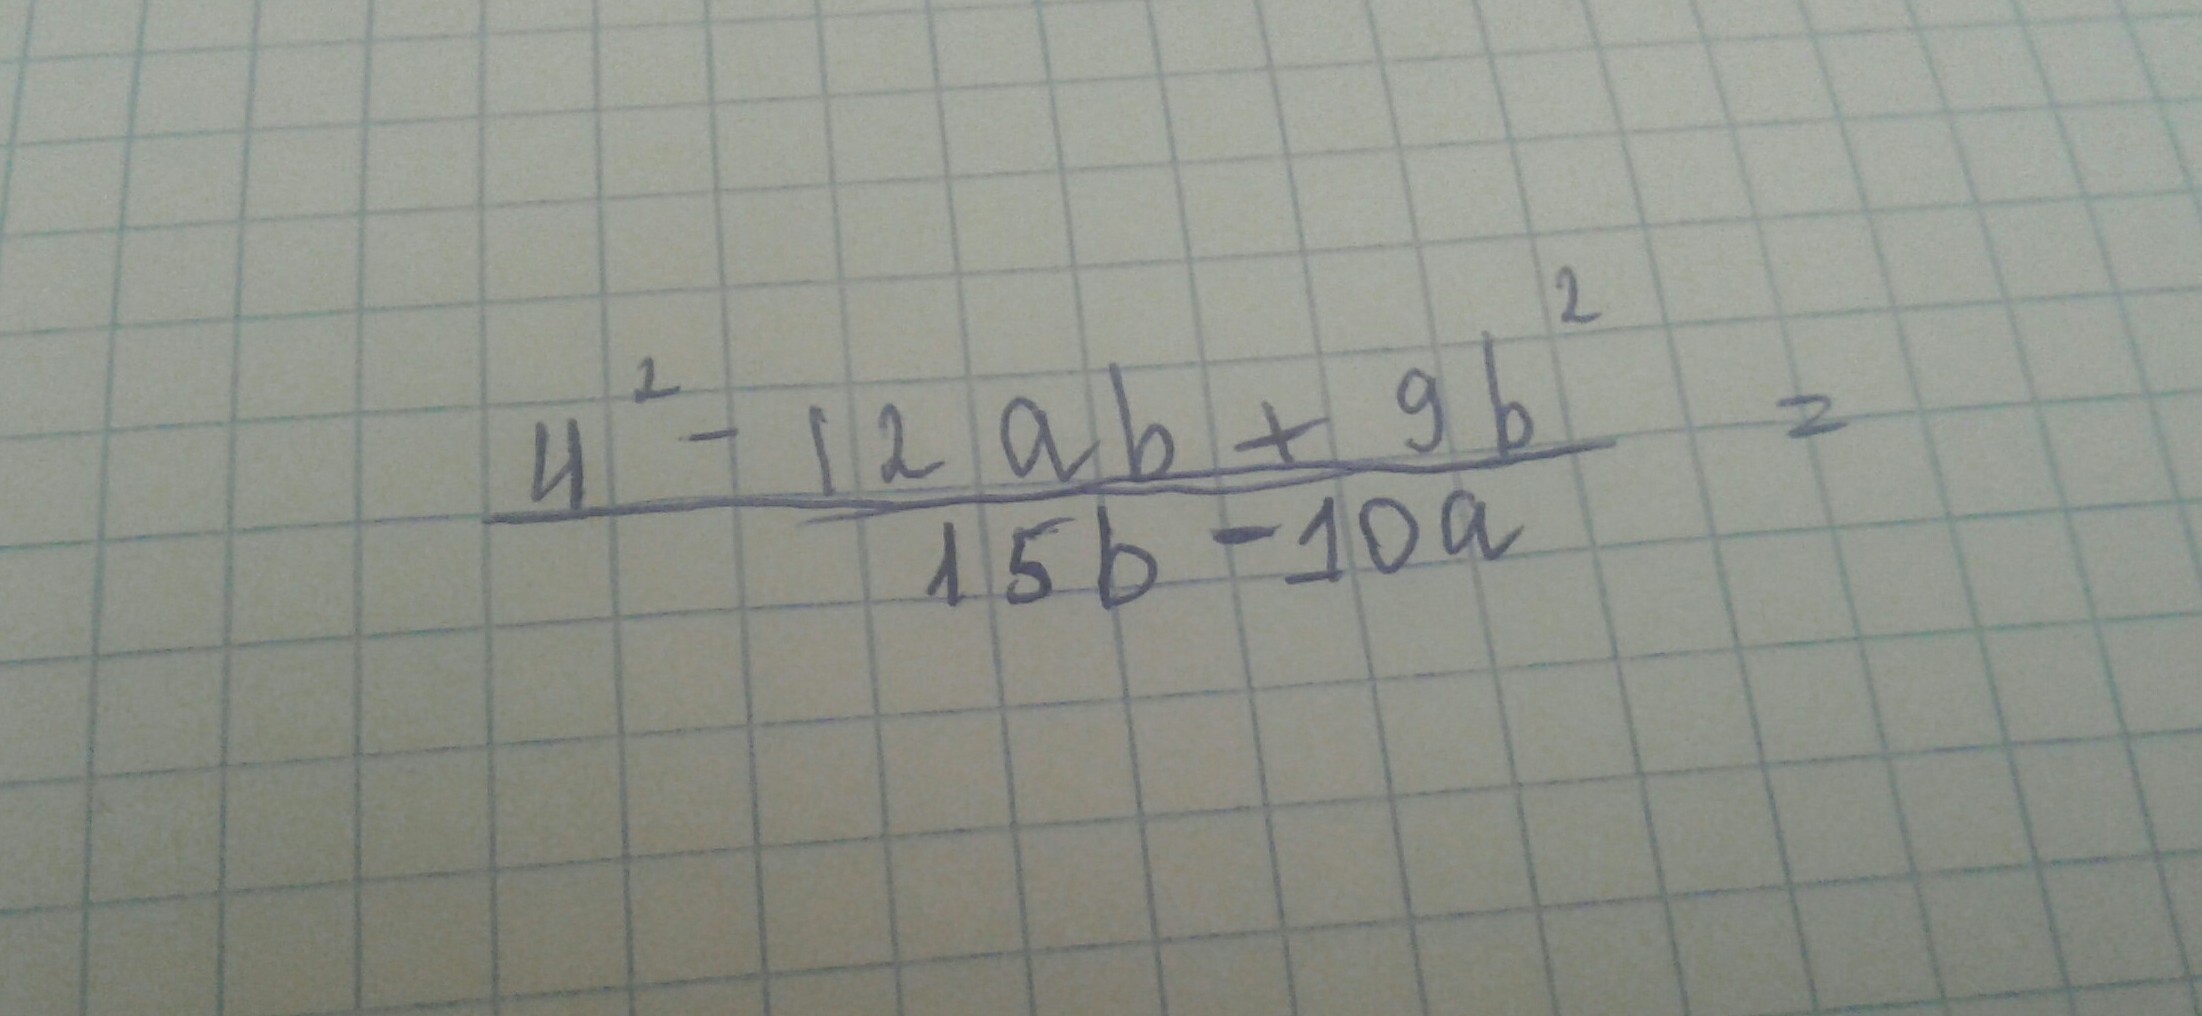 4² - 12ab + 9b² =
15b - 10a